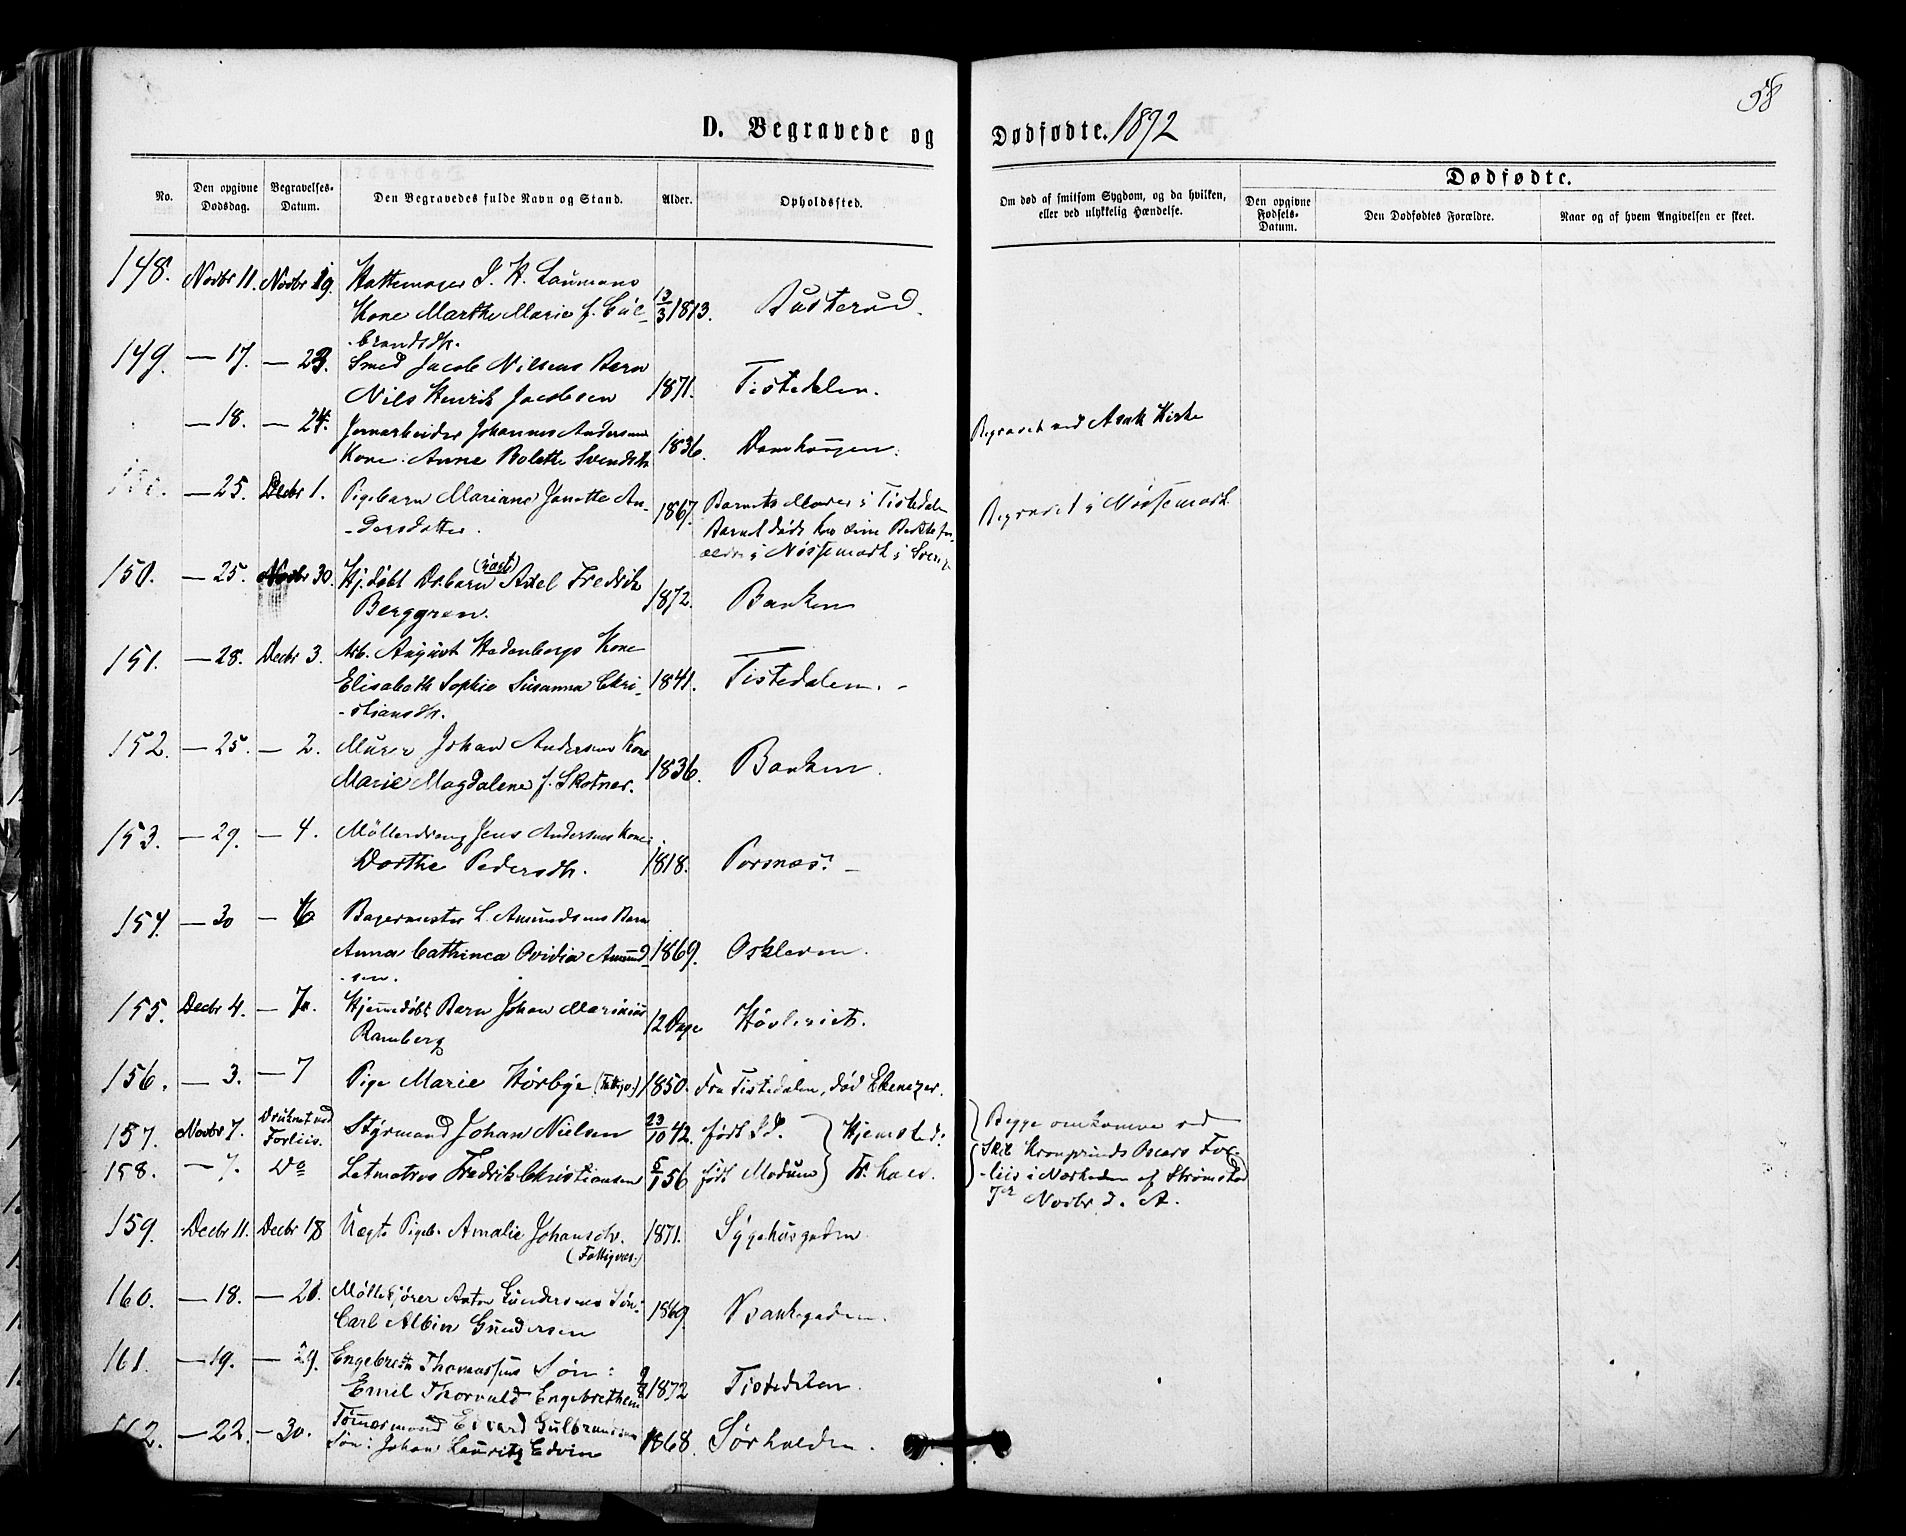 58
D. Begravede og Dødfødte. 1872
No.
Den opgivne Dødsdag.
Begravelses-Datum.
Den Begravedes fulde Navn og Stand.
Alder.
Opholdssted.
Om død af smitsom Sygdom, og da hvilken, eller ved ulykkelig Hændelse.
Dødfødte.
Den opgivne Fødsels-Datum.
Den Dødfødtes Forældre.
Naar og af hvem Angivelsen er skeet.
148. Novbr 11. Novbr 19. Hattemager J. H. Laumans
Kone Marthe Marie f. Gul- 13/3 1813. Austerud.
-brandsdtr.
149. — 17. — 23. Smed Jacob Nilsens Barn
Nils Henrik Jacobsen 1871. Tistedalen.
— 18. — 24. Jernarbeider Johannes Andersens
Kone: Anne Bolette Svendsdtr 1836. Damhaugen. Begravet ved Asak Kirke
— 25. Decbr 1. Pigebarn Mariane Janette An-
-dersdatter. 1867. Barnets Moder i Tistedalen
Barnet døde hos sine Bedstefor-
ældre i Nössemark i Sverige Begravet i Nössemark
150. — 25. Novbr 30. Hj.døbt Drbarn (uægte) Axel Fredrik
Berggren. 1872. Banken
151. — 28. Decbr 3. Arb. August Hedenborgs Kone
Elisabeth Sophie Susanna Chri- 1841. Tistedalen.
-stiansdtr.
152. — 25. — 2. Murer Johan Andersens Kone
Marie Magdalene f. Skotner. 1836. Banken.
153. — 29. — 4. Möllerdreng Jens Andersens Kone:
Dorthe Pedersdtr. 1818. Porsnæs.
154. — 30 — 6 Bagermester L. Amundsens Barn
Anna Cathinca Ovidia Amund- 1869. Oskleven.
-sen.
155. Decbr 4. — 7. Hjemmedøbt Barn Johan Marinius
Ramberg 12 Dage Høvleriet.
156. — 3. — 7 Pige Marie Hörbye (Fattigv.) 1850. Fra Tistedalen, død Ebenezer.
157. Novbr 7. Druknet ved
Forliis. Styrmand Johan Nielsen 23/10 42. født Id. Hjemsted:
158. — 7. Do Letmatros Fredrik Christiansen 5/1 56 født Modum Fr.hald.
Begge omkomne ved
Skib Kronprinds Oscars For-
-liis i Nærheden af Strømstad
7de Novbr. d. A.
159. Decbr 11. Decbr 18 Uægte Pigeb. Amalie Johansdtr.
(Fattigvæs.) 1871. Sygehusgaden
160. — 18. — 21. Möllekjører Anton Gundersens Søn:
Carl Albin Gundersen 1869. Bankegaden.
161. — 19. — 29. Engebreth Thomassens Søn:
Emil Thorvald Engebrethsen 9/8 1872 Tistedalen.
162. — 22. — 30. Tømmermand Edvard Gulbrandsens
Søn: Johan Lauritz Edvin 1868. Sørhalden.